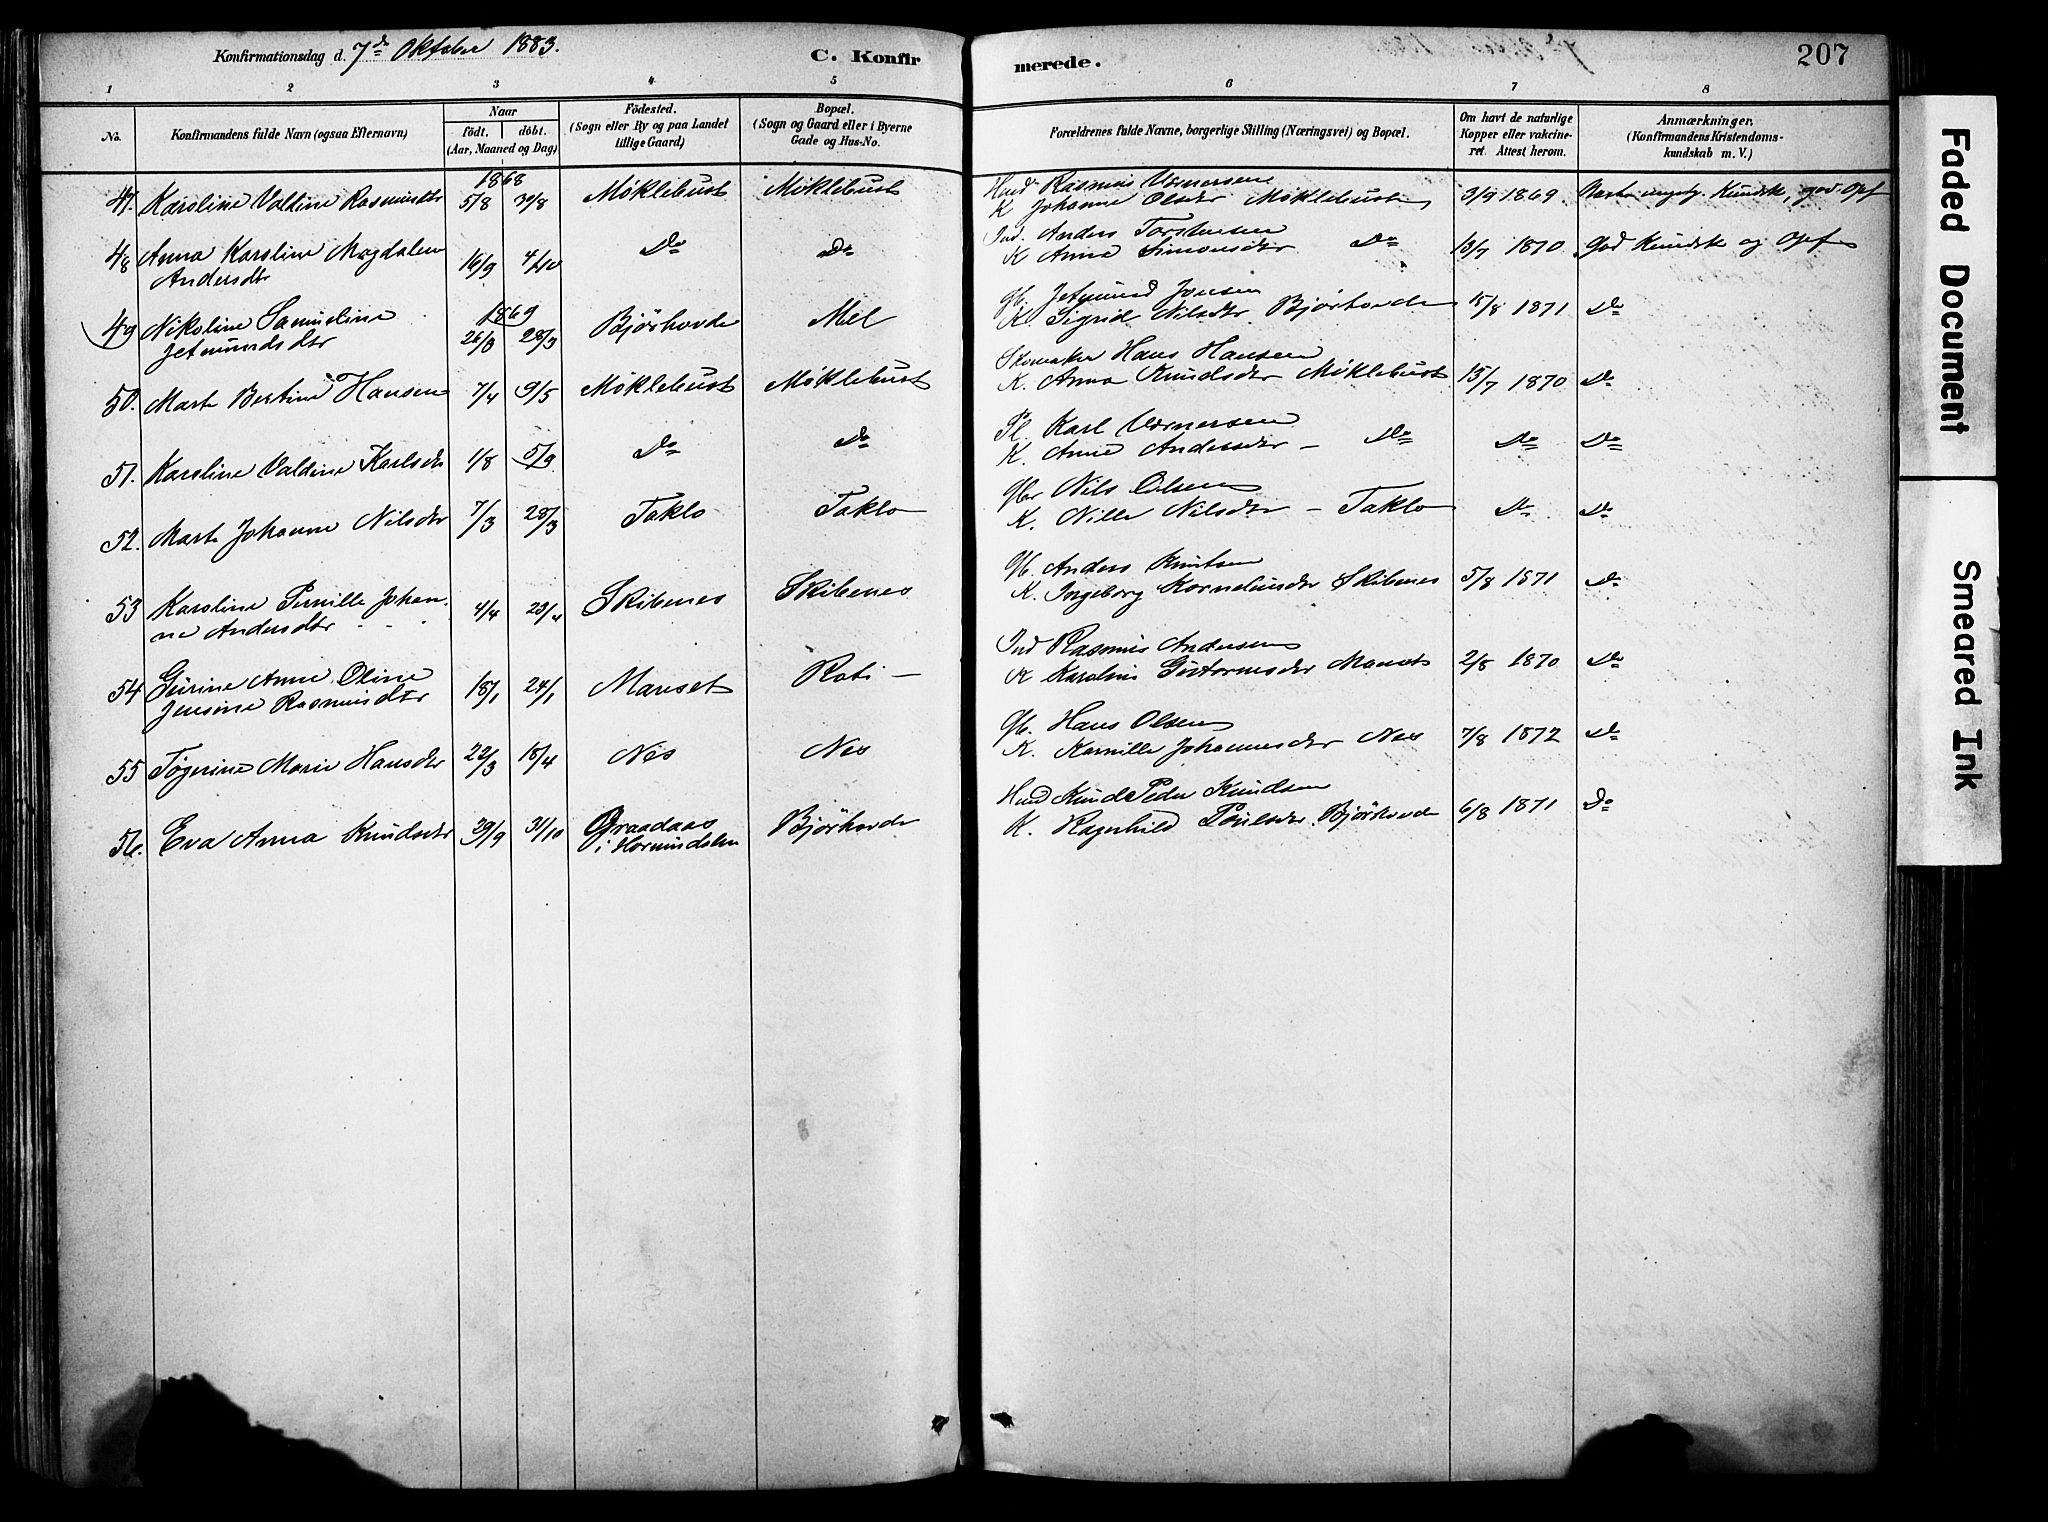 Konfirmationsdag d. 7de Oktober 1883.
C. Konfir
merede.
207
1 2 3 4 5 6 7 8
No.
Konfirmandens fulde Navn (ogsaa Efternavn)
Naar
födt. döbt.
(Aar, Maaned og Dag)
Födested.
(Sogn eller By og paa Landet
tillige Gaard)
Bopæl.
(Sogn og Gaard eller i Byerne
Gade og Hus-No.
Forældrenes fulde Navne, borgerlige Stilling (Næringsvei) og Bopæl.
Om havt de naturlige
Kopper eller vakcine-
ret. Attest herom.
Anmærkninger.
(Konfirmandens Kristendoms-
kundskab m. V.)
1868
47. Karoline Valdine Rasmusdtr 5/8 30/8 Møklebust Møklebust
Rasmus Vernersen
K Johanne Olsdtr Møklebust 3/9 1869. Kundsk, god Opf
48 Anna Karoline Magdalene
Andersdtr 16/9 4/10 Do Do
Ind. Anders Torstensen
K Anne Simonsdtr Do 13/7 1870. God Kundsk og Opf
1869
49 Nikoline Samueline
Jetmundsdtr 28/3 Bjørhovde Mel
Gb. Jetmund Jonsen
K. Sigrid Nilsdtr Bjørhovde 15/8 1871 Do
50. Marte Bertine Hansen 7/4 9/5 Møklebust Møklebust
Skomaker Hans Hansen
K. Anna Knudsdtr Møklebust 15/7 1870 Do
51. Karoline Valdine Karlsdtr 1/8 5/9 Do Do
Pl. Karl Vernersen
K. Anne Andersdtr - Do Do Do
52. Marte Johanne Nilsdtr 7/3 28/3 Taklo Taklo
Gbr Nils Olsen
K. Nille Nilsdtr - Taklo Do Do
53 Karoline Pernille Johan-
ne Andersdtr 4/4 23/4 Skibenes Skibenes
Gb. Anders Knutsen
K. Ingeborg Korneliusdtr Skibenes 5/8 1871 Do
54 Gurine Anne Oline
Jensine Rasmusdtr 18/1 24/1 Manset Roti -
Ind Rasmus Andersen
K Karoline Guttormsdtr Manset 2/8 1870 Do
55 Tøgerine Marie Hansdtr 22/3 18/4 Nes Nes
Gb. Hans Olsen
K. Karnille Johannesdtr Nes 7/8 1872 Do
56. Eva Anna Knudsdtr 29/9 31/10 Graadaas
i Hornindalen Bjørhovde
Knud Peder Knudsen
K. Ragnhild Poulsdtr Bjørhovde 6/8 1871 Do
Faded Document
Smeared Ink